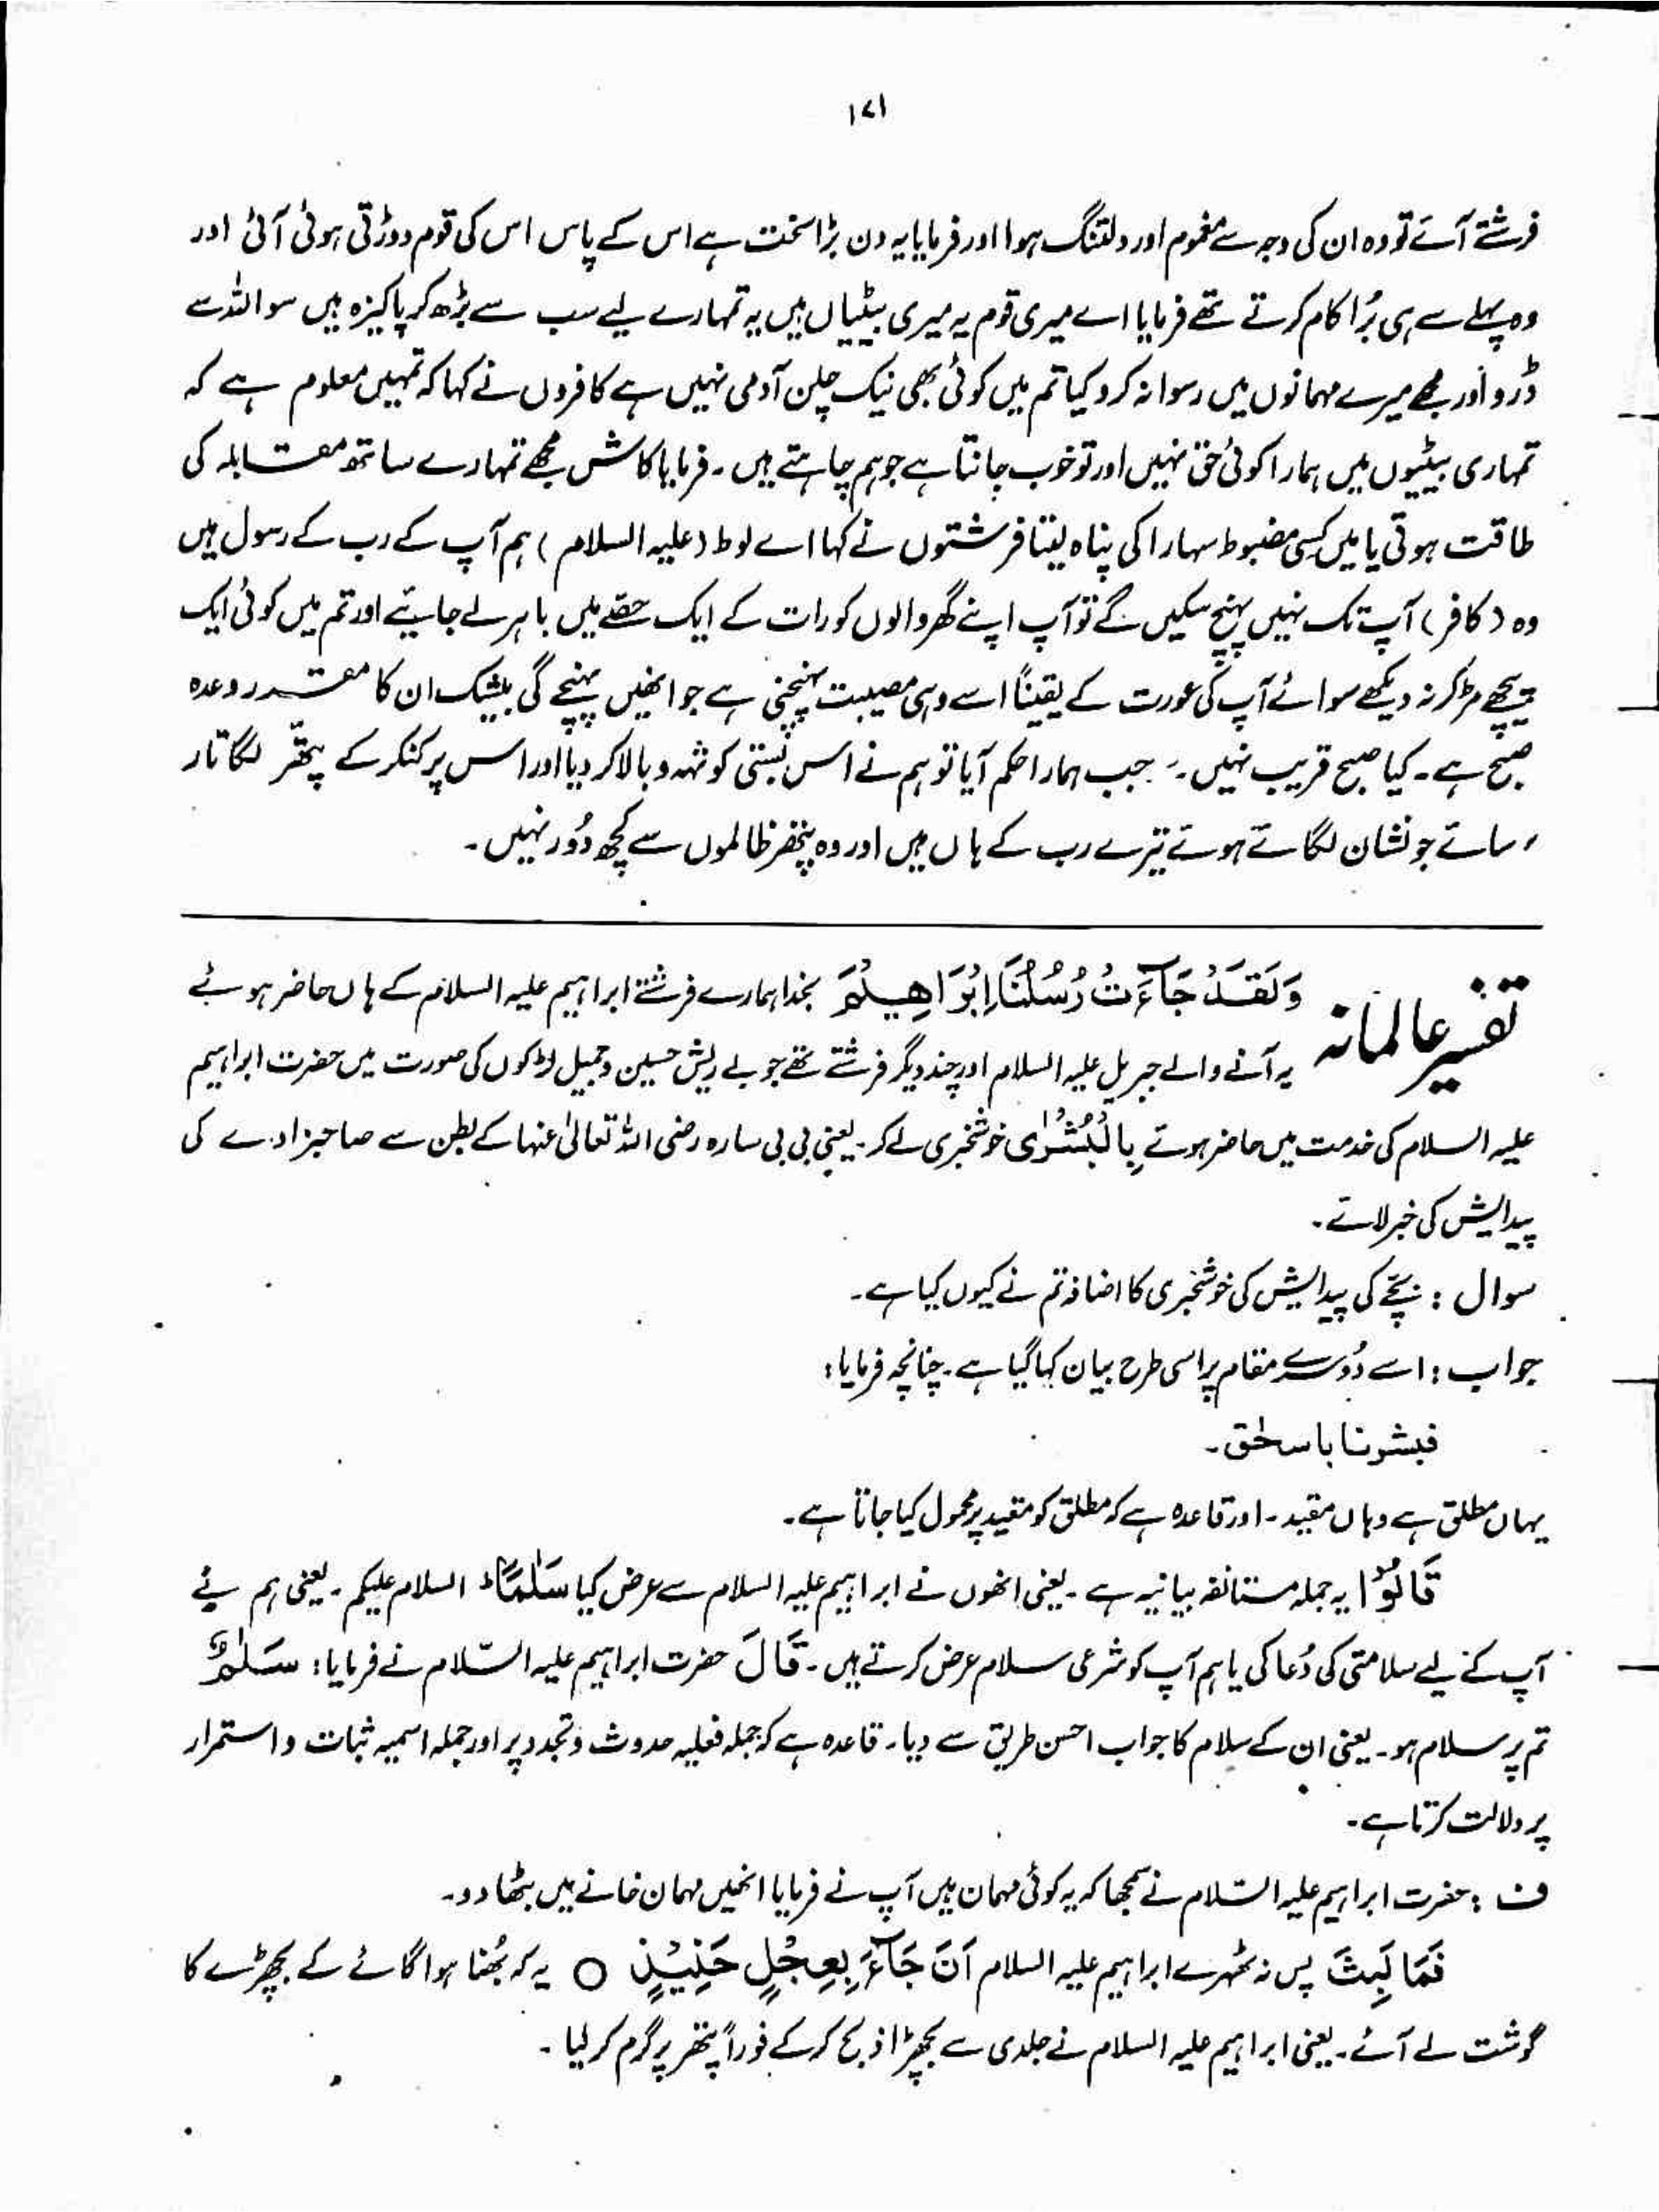 ۱۷۱
فرشتے آئے تو وہ ان کی وجہ سے مغموم اور دلتنگ ہوا اور فرمایا یہ دن بڑا سخت ہے اس کے پاس اس کی قوم دوڑتی ہوئی آئی اور
وہ پہلے سے ہی بُرا کام کرتے تھے فرمایا اے میری قوم یہ میری بیٹیاں ہیں یہ تمہارے لیے سب سے بڑھ کر پاکیزہ ہیں سو اللہ سے
ڈرو اور مجھے میرے مہمانوں میں رسوا نہ کرو کیا تم میں کوئی بھی نیک چلن آدمی نہیں ہے کافروں نے کہا کہ تمہیں معلوم ہے کہ
تمہاری بیٹیوں میں ہمارا کوئی حق نہیں اور تو خوب جانتا ہے جو ہم چاہتے ہیں ۔ فرمایا کاش مجھے تمہارے ساتھ مقابلہ کی
طاقت ہوتی یا میں کسی مضبوط سہارا کی پناہ لیتا فرشتوں نے کہا اے لوط (علیہ السلام) ہم آپ کے رب کے رسول ہیں
وہ (کافر) آپ تک نہیں پہنچ سکیں گے تو آپ اپنے گھر والوں کو رات کے ایک حصے میں باہر لے جایئے اور تم میں کوئی ایک
پیچھے مڑ کر نہ دیکھے سوائے آپ کی عورت کے یقیناً اسے وہی مصیبت پہنچنی ہے جو انھیں پہنچے گی بیشک ان کا مقرر وعدہ
صبح ہے۔ کیا صبح قریب نہیں ۔ جب ہمارا حکم آیا تو ہم نے اس بستی کو تہہ و بالا کر دیا اور اس پر کنکر کے پتھّر لگاتار
برسائے جو نشان لگائے ہوئے تیرے رب کے ہاں ہیں اور وہ پتھر ظالموں سے کچھ دُور نہیں ۔
تفسیر عالمانہ وَلَقَدْ جَآءَتْ رُسُلُنَآ اِبْرَاهِیْمَ بخدا ہمارے فرشتے ابراہیم علیہ السلام کے ہاں حاضر ہوئے
یہ آنے والے جبریل علیہ السلام اور چند دیگر فرشتے تھے جو بے ریش حسین و جمیل لڑکوں کی صورت میں حضرت ابراہیم
علیہ السلام کی خدمت میں حاضر ہوئے بِالْبُشْرٰی خوشخبری لے کر۔ یعنی بی بی سارہ رضی اللہ تعالیٰ عنہا کے بطن سے صاحبزادے کی
پیدایش کی خبر لائے ۔
سوال : بچّے کی پیدایش کی خوشخبری کا اضافہ تم نے کیوں کیا ہے ۔
جواب : اسے دُوسرے مقام پر اسی طرح بیان کیا گیا ہے ۔ چنانچہ فرمایا:
فبشرنا باسحٰق ۔
یہاں مطلق ہے وہاں مقید ۔ اور قاعدہ ہے کہ مطلق کو مقید پر محمول کیا جاتا ہے ۔
قَالُوْا یہ جملہ مستانفہ بیانیہ ہے ۔ یعنی انھوں نے ابراہیم علیہ السلام سے عرض کیا سَلٰمًا ؕ السلام علیکم ۔ یعنی ہم نے
آپ کے لیے سلامتی کی دُعا کی یا ہم آپ کو شرعی سلام عرض کرتے ہیں ۔ قَالَ حضرت ابراہیم علیہ السّلام نے فرمایا: سَلٰمٌ
تم پر سلام ہو ۔ یعنی ان کے سلام کا جواب احسن طریق سے دیا ۔ قاعدہ ہے کہ جملہ فعلیہ حدوث و تجدد پر اور جملہ اسمیہ ثبات و استمرار
پر دلالت کرتا ہے ۔
ف : حضرت ابراہیم علیہ السّلام نے سمجھا کہ یہ کوئی مہمان ہیں آپ نے فرمایا انھیں مہمان خانے میں بٹھا دو ۔
فَمَا لَبِثَ پس نہ ٹھہرے ابراہیم علیہ السلام اَنْ جَآءَ بِعِجْلٍ حَنِیْذٍ ○ یہ کہ بُھنا ہوا گائے کے بچھڑے کا
گوشت لے آئے ۔ یعنی ابراہیم علیہ السلام نے جلدی سے بچھڑا ذبح کر کے فوراً پتھر پر گرم کر لیا ۔